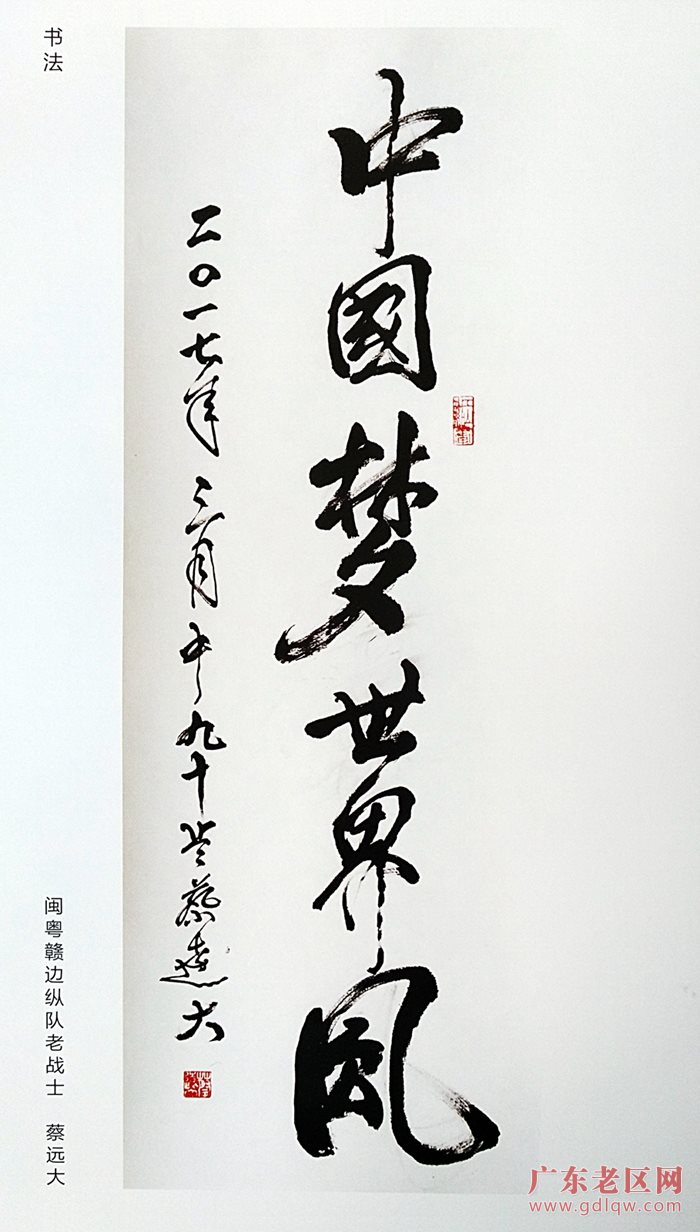 书法
中國梦世界風
二〇一七年三月 九十岁蔡遠大
闽粤赣边纵队老战士 蔡远大
广东老区网
www.gdlqw.com